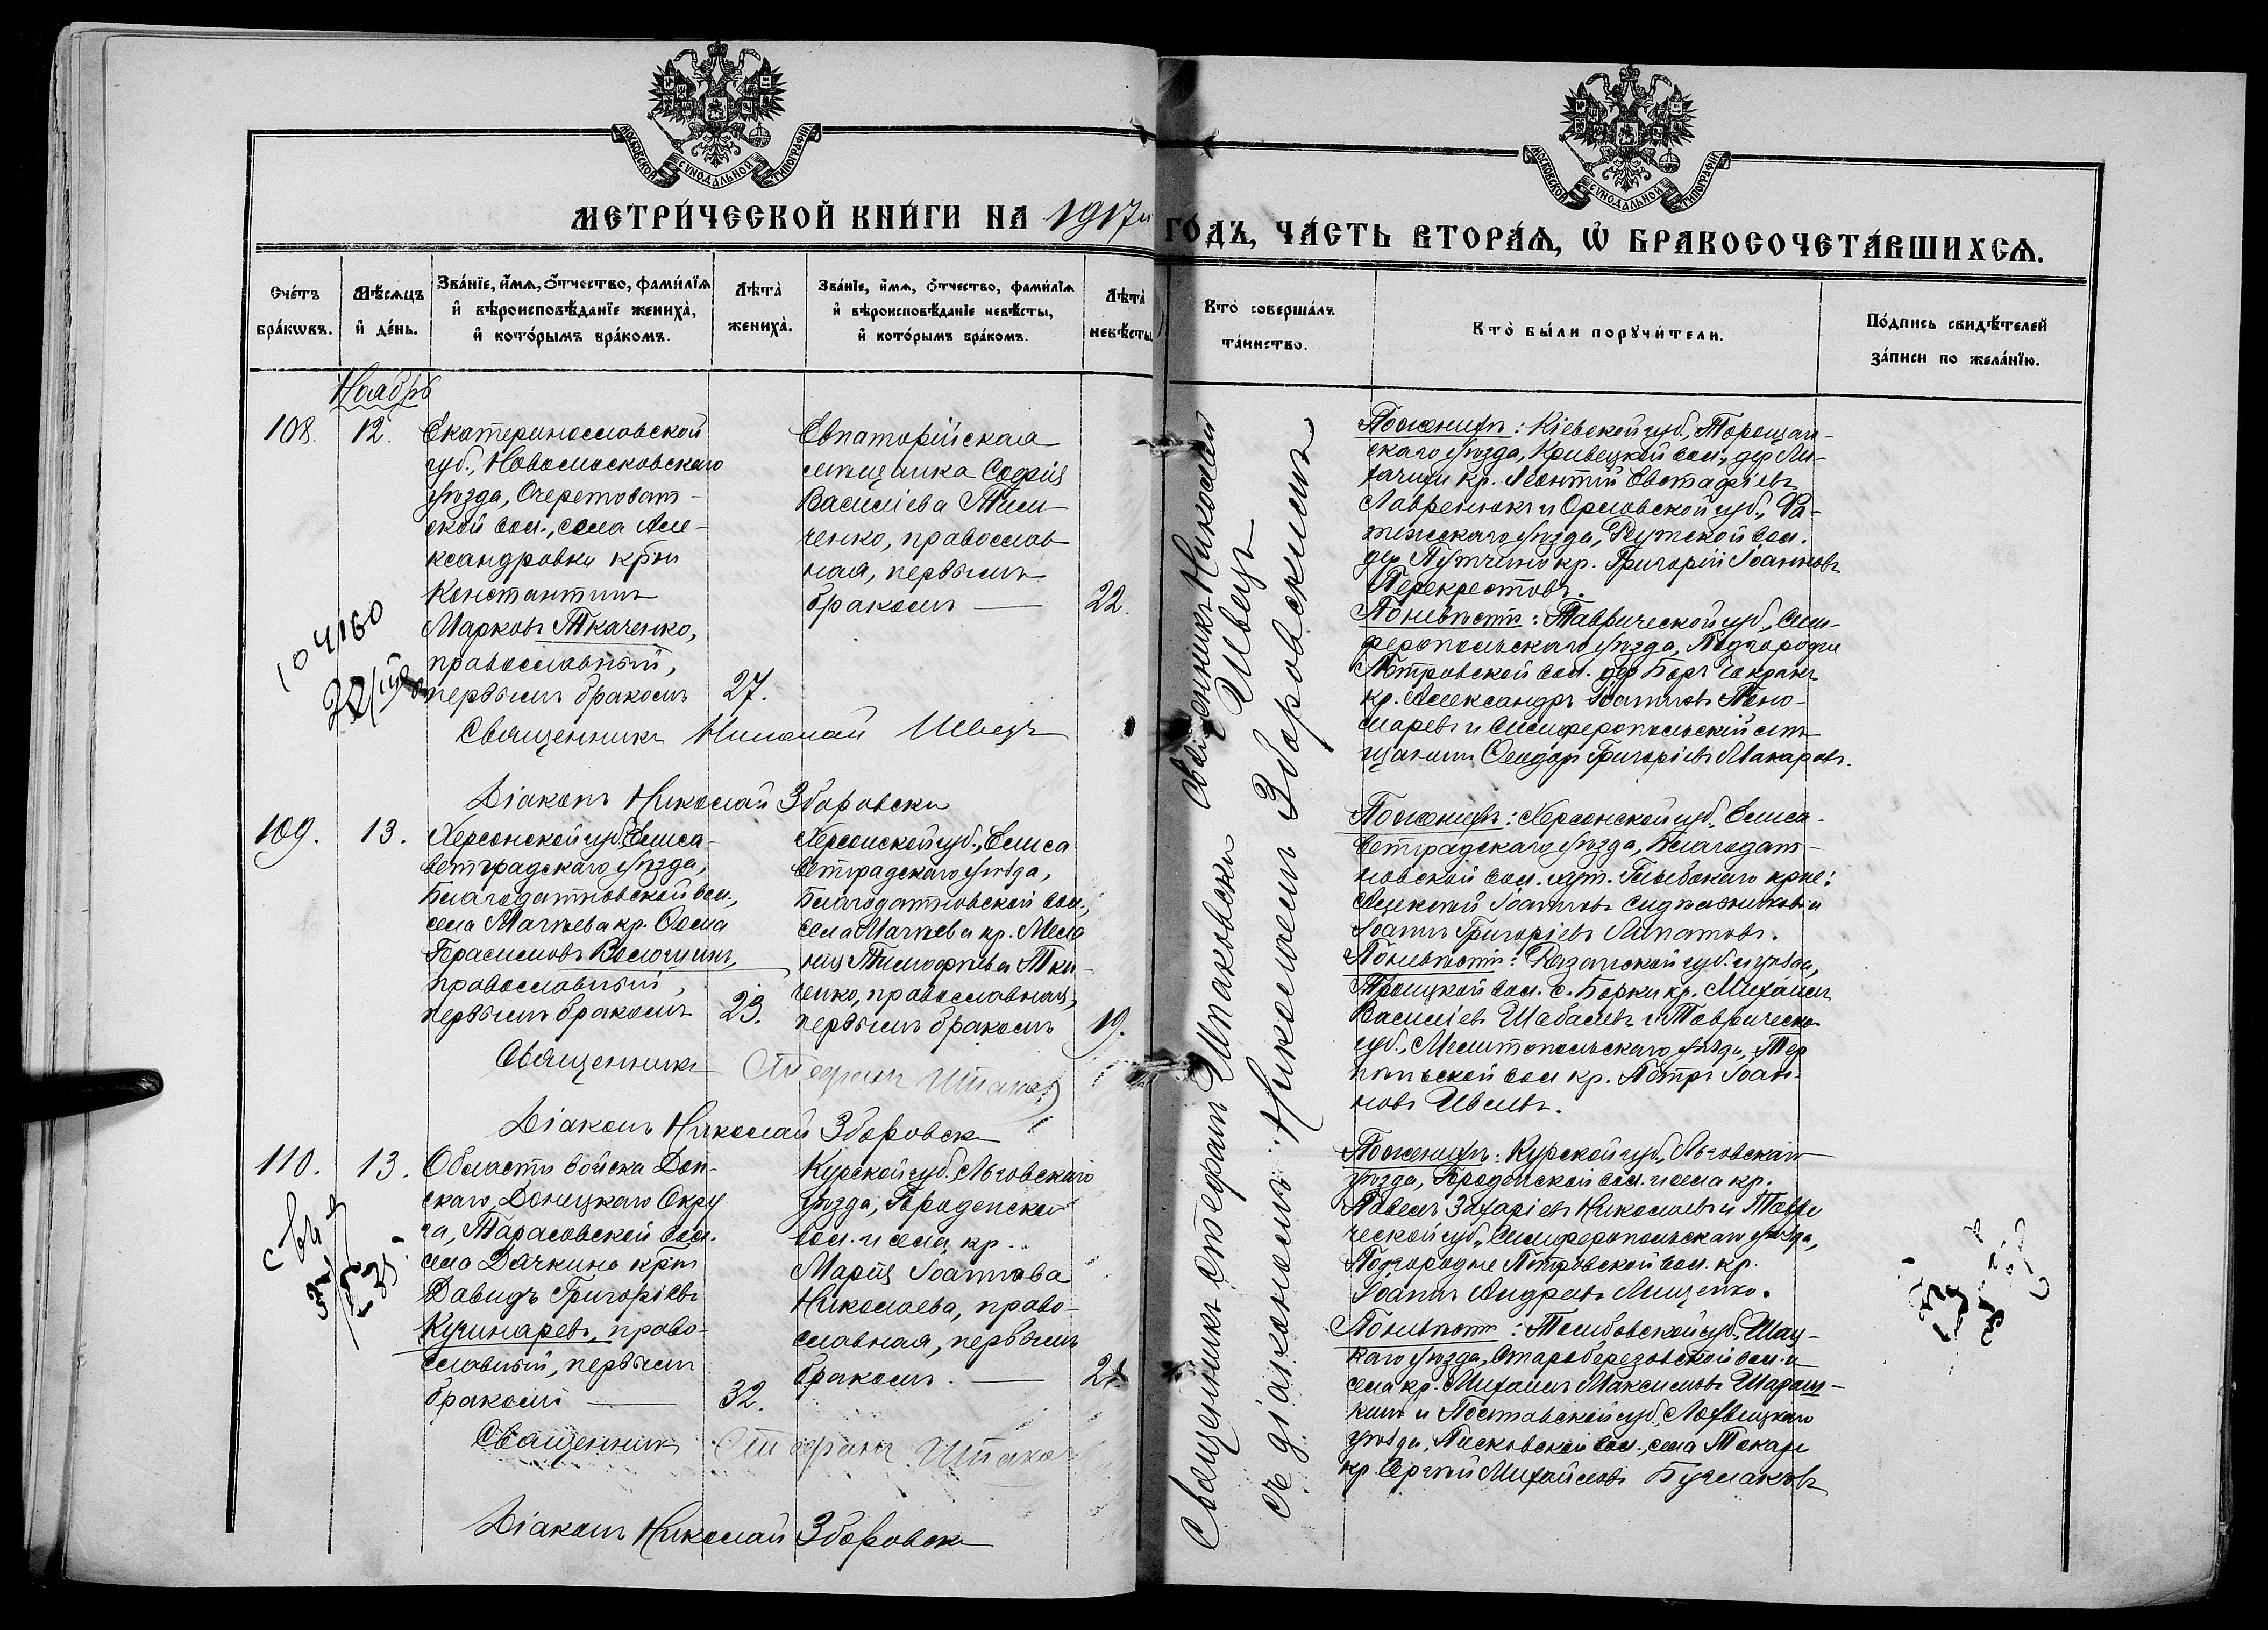 МОСКОВСКОЙ СѴНОДАЛЬНОЙ ТИПОГРАФІИ
МОСКОВСКОЙ СѴНОДАЛЬНОЙ ТИПОГРАФІИ
МЕТРИ́ЧЕСКОЙ КНИ́ГИ НА 1917й ГО́ДЪ, ЧА́СТЬ ВТОРА́Ѧ, Ѡ БРАКОСОЧЕТА́ВШИХСѦ.
Сче́тъ бра́кωвъ.
Мѣ́сяцъ и де́нь.
Зва́нїе, и́мѧ, о́тчество, фами́лїѧ
и вѣроисповѣ́данїе жениха̀,
и кото́рымъ бра́комъ.
Лѣта̀ жениха̀.
Зва́нїе, и́мѧ, о́тчество, фами́лїѧ
и вѣроисповѣ́данїе невѣ́сты,
и кото́рымъ бра́комъ.
Лѣта̀ невѣ́сты.
Кто̀ соверша́лъ
та́инство.
Кто̀ бы́ли порꙋчи́тели.
По́дпись свидѣ́телей
за́писи по жела́нїю.
Ноябрь
108.
12.
Екатеринославской
губ., Новомосковскаго
уѣзда, Очеретоват-
ской вол., села Але-
ксандровки кр-нъ
Константинъ
Марковъ Ткаченко,
православный,
первымъ бракомъ
27.
Евпаторійская
мѣщанка Софія
Васильева Тим-
ченко, православ
ная, первымъ
бракомъ —
22.
Поженихѣ: Кіевской губ., Таращан-
скаго уѣзда, Кривецкой вол., дер Ли-
хачихи кр. Леонтій Евстафіевъ
Лавренюкъ и Орловской губ., Фа-
тежскаго уѣзда, вол.
дер кр. Григорій Іоанновъ
Перекрестовъ.
Поневѣстѣ: Таврической губ., Сим-
феропольскаго уѣзда, Подгородне
Петровской вол. дер Борчокракъ
кр. Александръ Іоанновъ Поно-
маревъ и Симферопольскій мѣ-
щанинъ Ѳеодоръ Григоріевъ Макаровъ.
104160
Священникъ Николай Швецъ
Діаконъ Николай Зборовски
109.
13.
Херсонской губ. Елиса-
ветградскаго уѣзда,
Благодатновской вол.,
села Матвѣева кр. Ѳома
Герасимовъ Волошинъ,
православный,
первымъ бракомъ
23.
Херсонской губ., Елиса
ветградскаго уѣзда,
Благодатновской вол.,
села Матвѣева кр. Мела
нія Тимофѣева Тка-
ченко, православная,
первымъ бракомъ
19.
Поженихѣ: Херсонской губ., Елиса-
ветградскаго уѣзда, Благодат-
новской вол. хут. Глыбокаго кр-не:
Алексѣй Іоанновъ и
Іоаннъ Григоріевъ Липатовъ.
Поневѣстѣ: Рязанской губ. и уѣзда,
Троицкой вол. с. Борки кр. Михаилъ
Василіевъ Шабаевъ и Таврическ
губ., Мелитопольскаго уѣзда, Тер
пѣньской вол кр. Петръ Іоан-
новъ Ивлевъ.
Священникъ Стефанъ Шпаков
Діаконъ Николай Зборовск
110.
13.
Области войска Дон-
скаго, Донецкаго Окру
га, Тарасовской вол.
села Дячкино кр-нъ
Давидъ Григоріевъ
Кушнаревъ, право-
славный, первымъ
бракомъ —
32.
Курской губ. Льговскаго
уѣзда, Городенской
вол. и села, кр.
Марія Іоаннова
Николаева, право-
славная, первымъ
бракомъ. —
Поженихѣ: Курской губ., Льговскаго
уѣзда, Городенской вол. и села кр.
Павелъ Захаріевъ Николаевъ и Таври
ческой губ., Симферопольскаго уѣзда,
Подгородне Петровской вол. кр.
Іоаннъ Андреевъ Лищенко.
Поневѣстѣ: Тамбовской губ., Шац-
каго уѣзда, Староберезовской вол. и
села кр. Михаилъ Максимовъ Шараш-
кинъ и Полтавской губ. Лохвицкаго
уѣзда, Песковской вол., села Токари
кр. Сергѣй Михайловъ Бурлаковъ
Священникъ Стефанъ Шпаков
Діаконъ Николай Зборовск
Священникъ Стефанъ Шпаковски Священникъ Николай
Швецъ
съ діакономъ Николаемъ Зборовскимъ